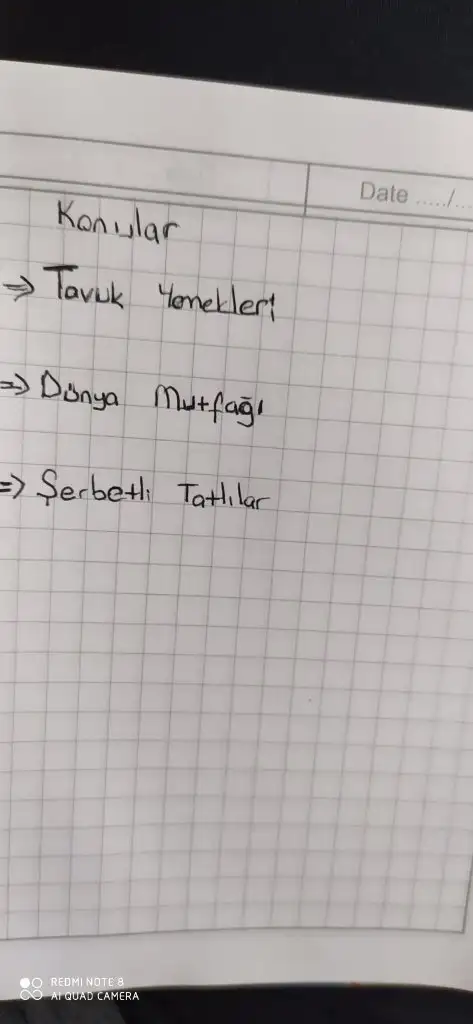 Date ...../...
Konular
⇒ Tavuk Yemekleri
⇒ Dünya Mutfağı
⇒ Şerbetli Tatlılar
REDMI NOTE 8
AI QUAD CAMERA